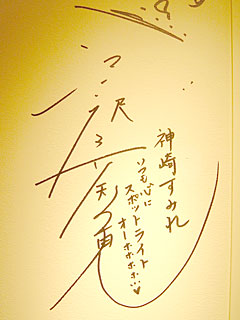 神崎すみれ
いつも心に
スポットライト
オーホホホホ…♥